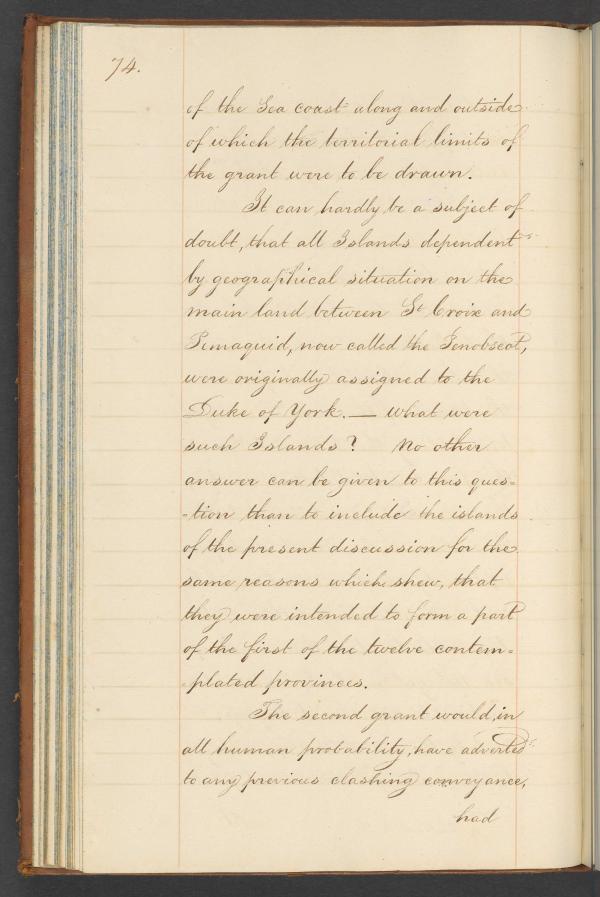 74.
of the Sea coast along and outside
of which the territorial limits of
the grant were to be drawn.
It can hardly be a subject of
doubt, that all Islands dependent
by geographical situation on the
main land between St Croix and
Pemaquid, now called the Penobscot,
were originally assigned to the
Duke of York. — what were
such Islands? No other
answer can be given to this ques=
=tion than to include the islands
of the present discussion for the
same reasons which shew, that
they were intended to form a part
of the first of the twelve contem=
=plated provinces.
The second grant would, in
all human probability, have adverted
to any previous clashing conveyance,
had